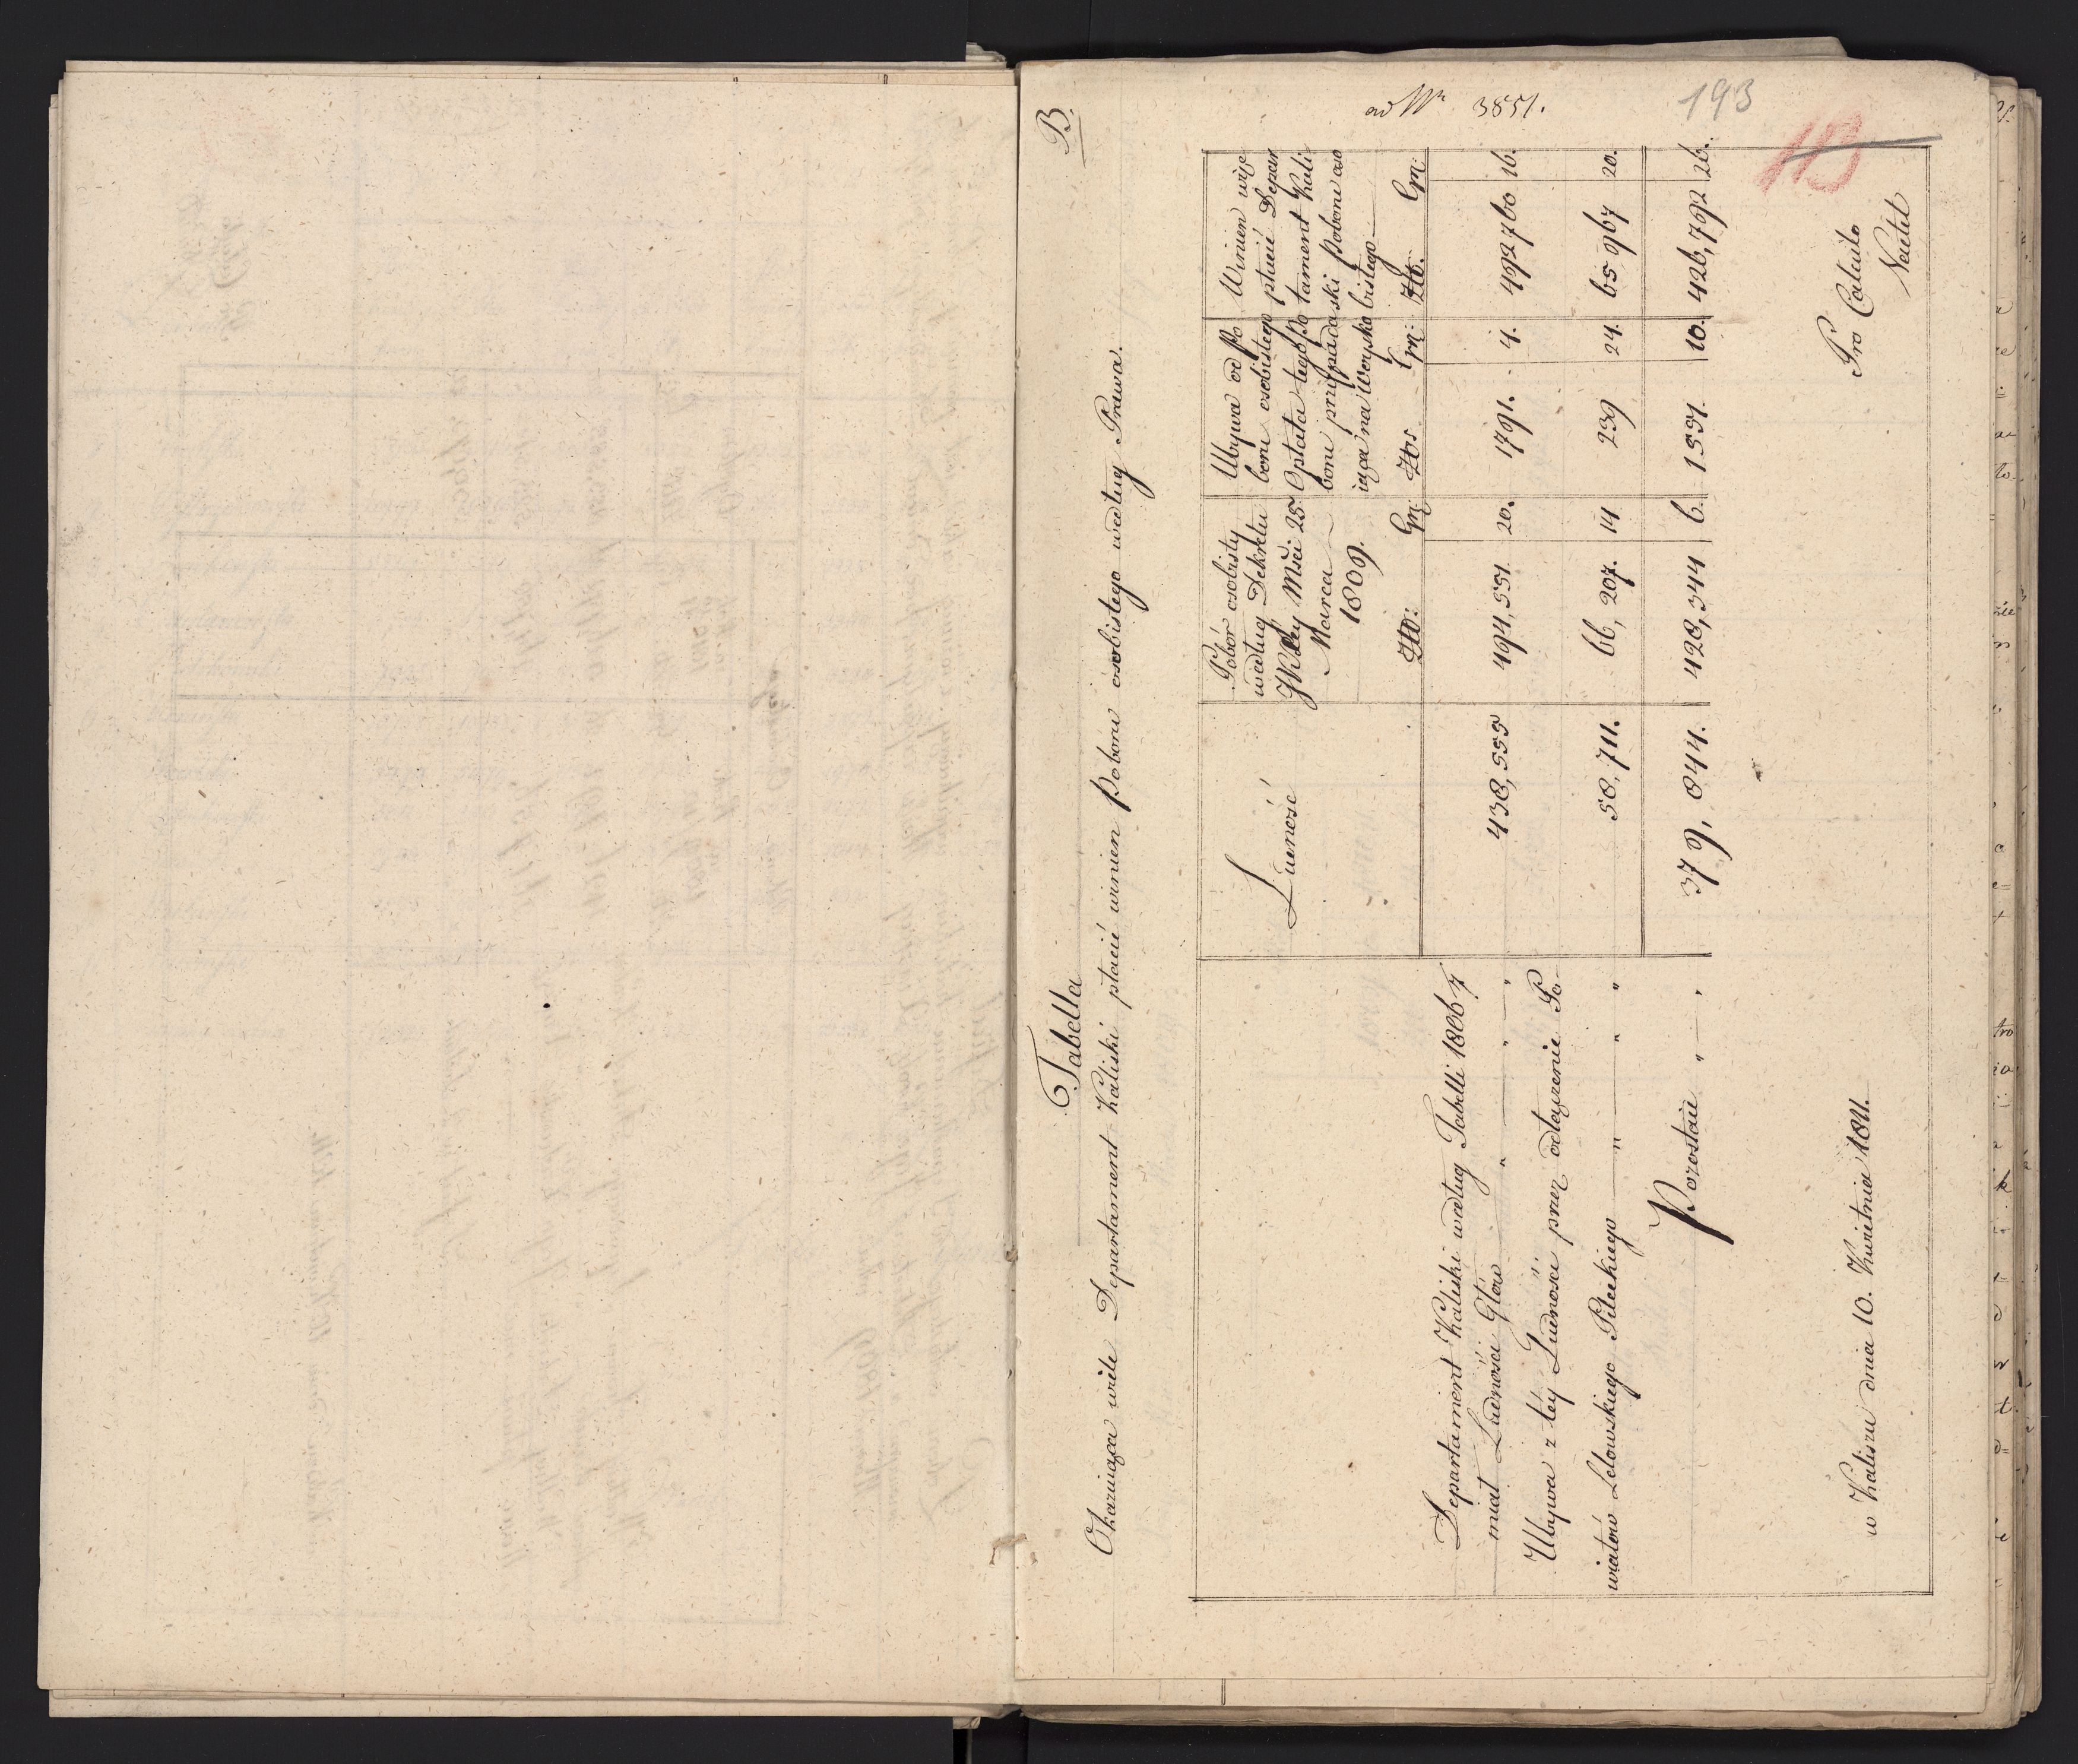 ad Nr 3851.
193
113
B.
Tabella
Okazuiąca wiele Departament Kaliski płacić winien Poboru osobistego według Prawa.
Ludność
Pobór osobisty
według Dekretu
Marca
1809.
Zło: Gr:
Ubywa od Po
boru osobistego
Opłata tego Po
boru przypada
iąca na Woysko
Złos Gr:
Winien więc
płacić Depar
tament Kali
ski Poboru oso
bistego
Zło. Gr:
Departament Kaliski według Tabelli 1806/7
miał Ludności Głów " — " — " 438,555 494,551 20. 1791. 4. 492760 16.
Ubywa z tey Ludności przez odłączenie Po-
wiatów Lelowskiego Pileckiego — " — " " 58,711. 66,207. 14 239 24. 65967 20.
Pozostaie " — " 379,844. 428,344 6. 1551. 10. 426,792 26.
w Kaliszu dnia 10. Kwietnia 1811.
Pro Calculo